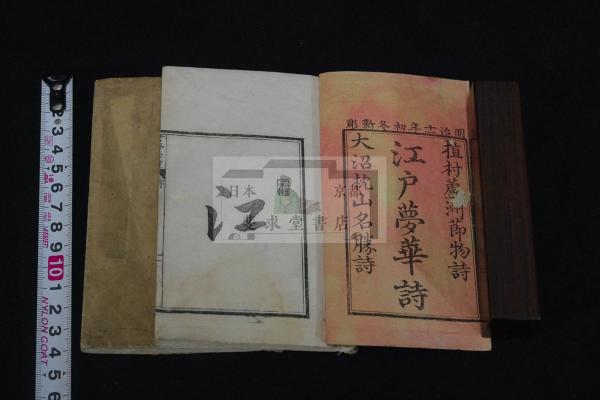 明治十年初冬新彫
植村蘆洲節物詩
江戸夢華詩
大沼枕山名勝詩
江
日本 京都
求堂書店
2 3 4 5 6 7 8 9 10 1 2 3 4 5 6
NYLON COAT